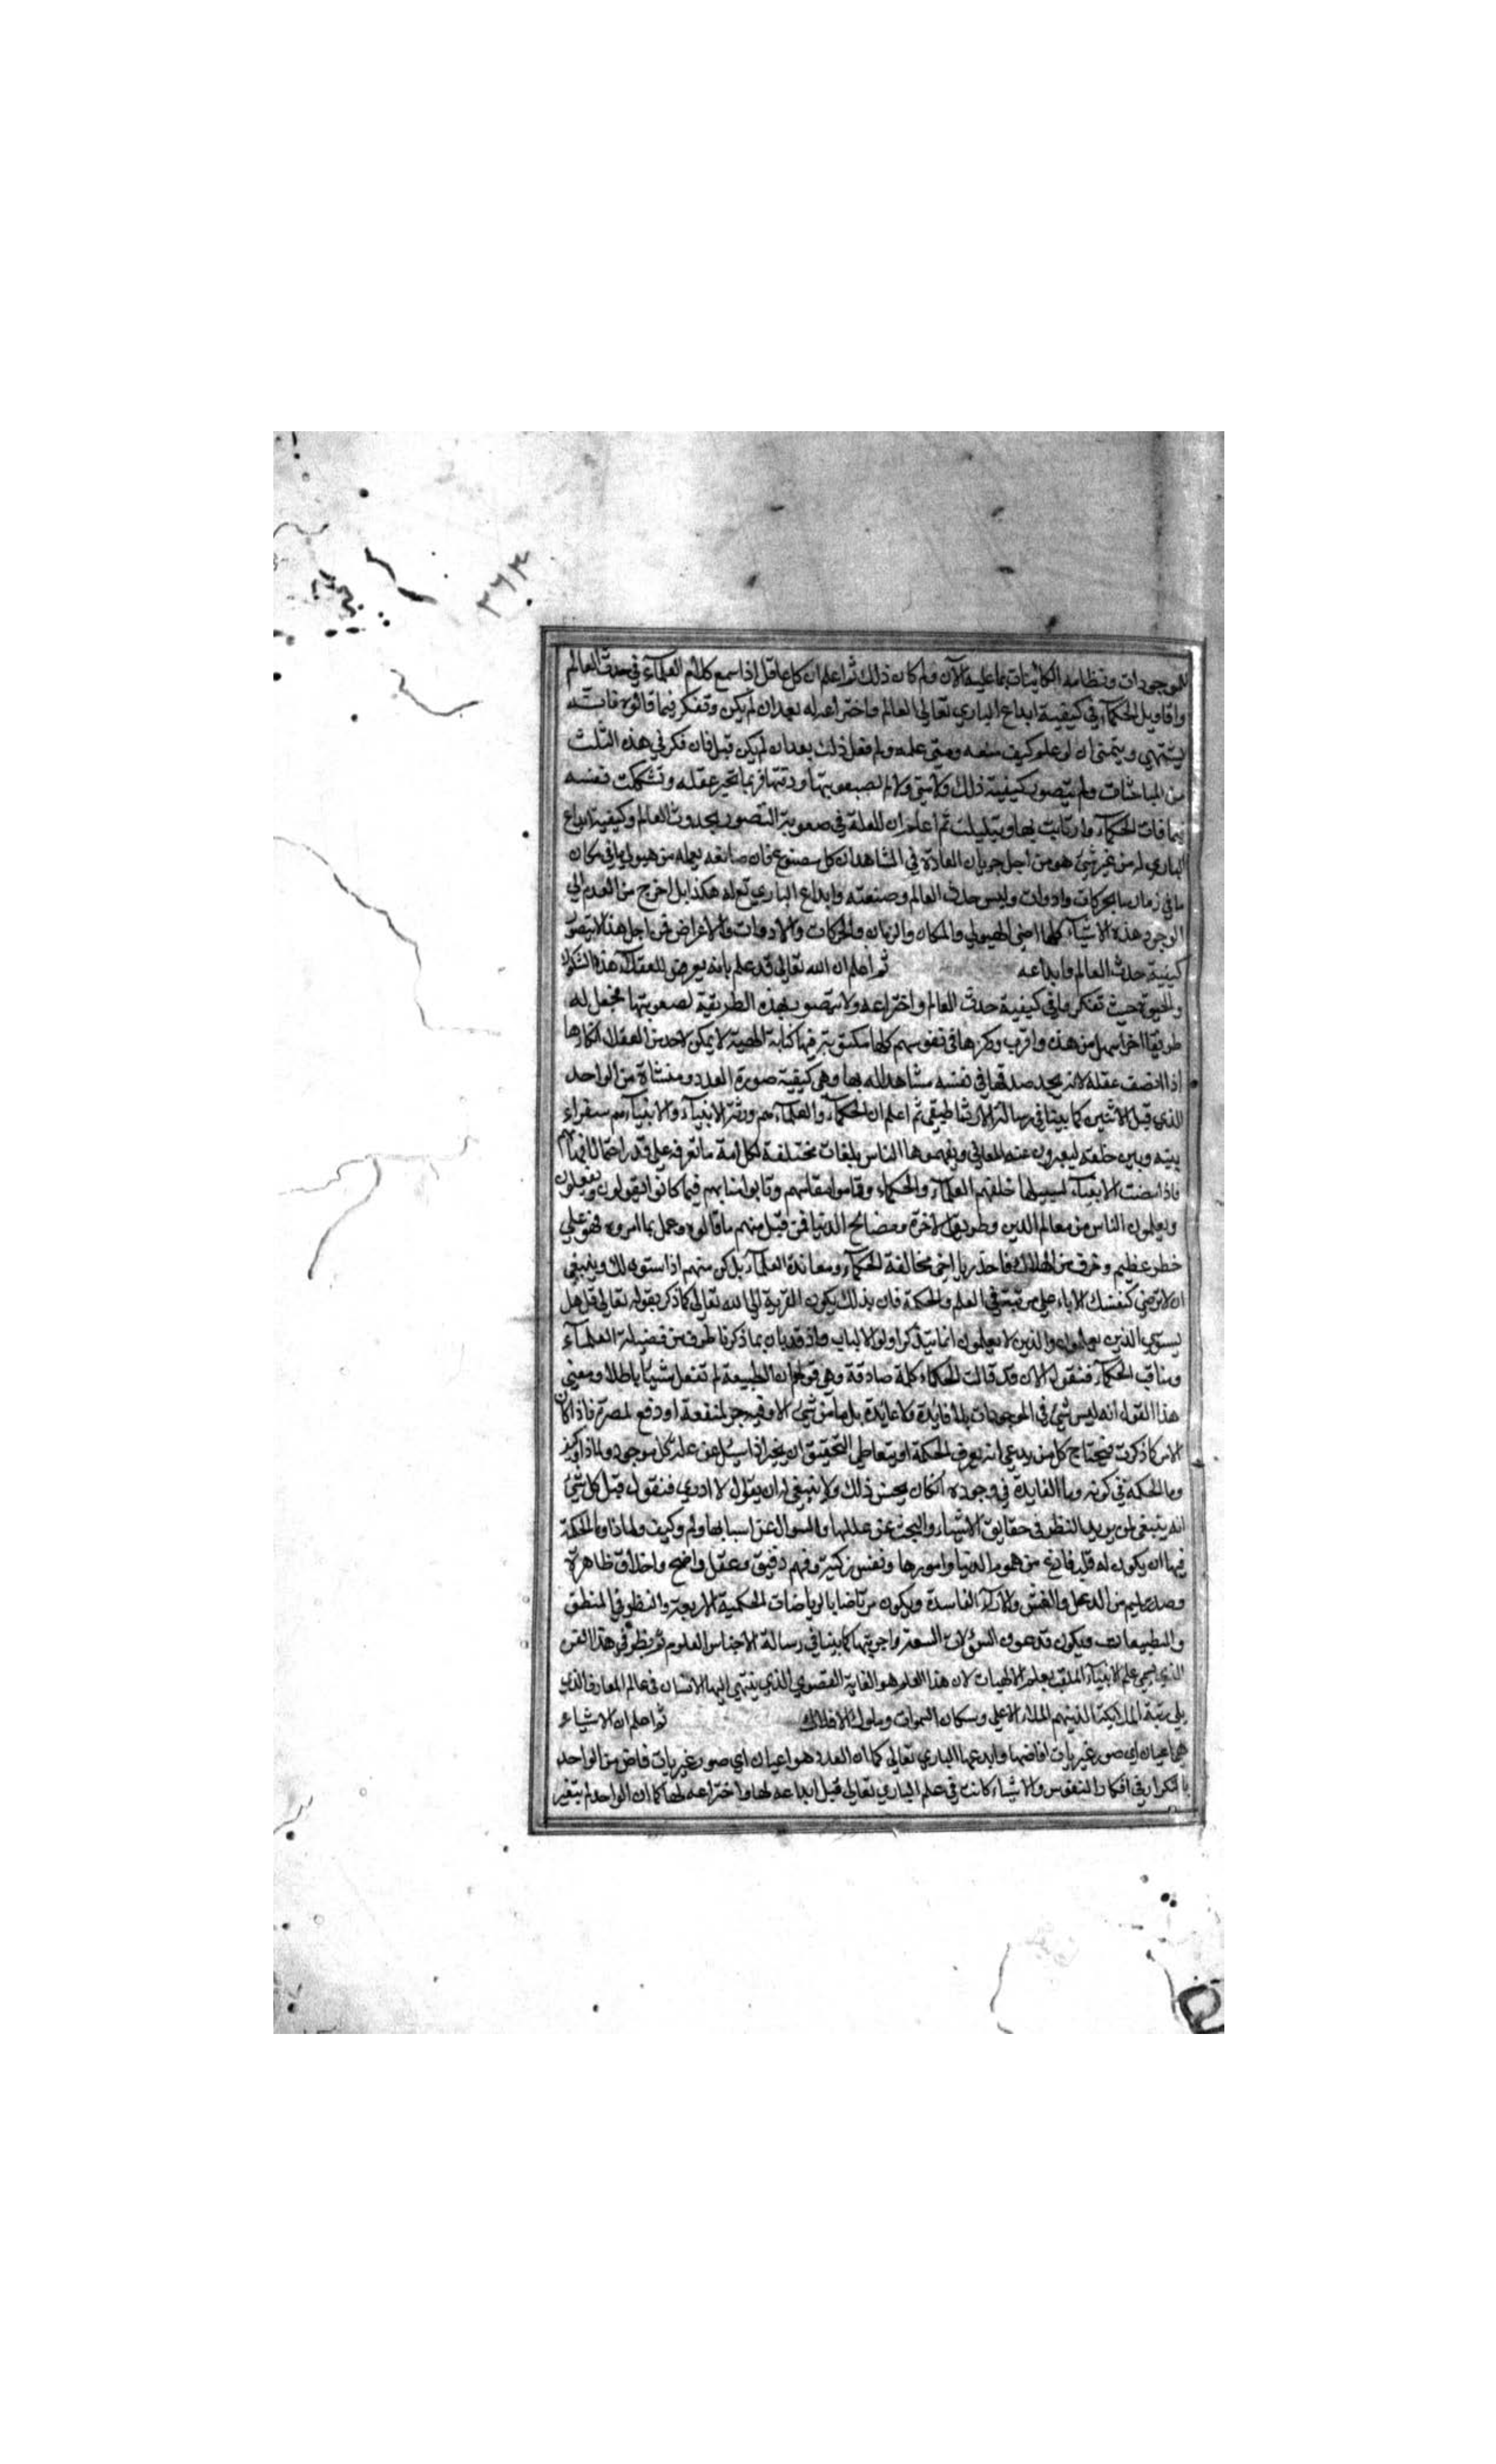 ٣٦٣
للموجودات ونظامه الكائينات بما عليه الآن ولم كان ذلك ثم اعلم ان كل عاقل اذا سمع كلام العلمآء في حدث العالم
واقاويل الحكمآء في كيفية ابداع الباري تعالى العالم واختراعه له بعد ان لم يكن وتفكر فيما قالوه فانه
يشتهي ويتمنى ان لو علم كيف صنعه ومتى عمله ولم فعل ذلك بعد ان لم يكن قبل فان فكر في هذه الثلث
من المباحثات ولم يتصور كيفية ذلك ولا متى ولا لم لصعوبتها ودقتها فربما تحير عقله وتشككت نفسه
فيما قالت الحكمآء وارتابت بها وتبلبلت ثم اعلم ان العلة في صعوبة التصور لحدوث العالم وكيفية ابداع
الباري له من غير شيئ هو من اجل جريان العادة في المشاهد ان كل مصنوع فان صانعه يعمله من هيولي ما في مكان
ما في زمان ما بحركات وادوات وليس حدث العالم وصنعته وابداع الباري تعا له هكذا بل اخرج من العدم الى
الوجود هذه الاشيآء كلها اعني الهيولي والمكان والزمان والحركات والادوات والاعراض فمن اجل هذا لا يتصور
كيفية حدث العالم وابداعه ثم اعلم ان الله تعالى قد علم بانه يعرض للعقلاء هذه الشكوك
والحيرة حيث تفكروا في كيفية حدث العالم واختراعه ولا يتصور بهذه الطريقة لصعوبتها فجعل له
طريقا اخر اسهل من هذه واقرب وركزها في نفوسهم كلها مكتوبة فيها كتابة الهية لا يمكن لاحد من العقلاء انكارها
اذا انصف عقله لانه يجد صدقها في نفسه مشاهد له بها وهي كيفية صورة العدد ومنشاة من الواحد
الذي قبل الاثنين كما بينا في رسالة الارثماطيقي ثم اعلم ان الحكمآء والعلمآء هم ورثة الانبيآء والانبيآء هم سفراء
بينه وبين خلقه ليعبرون عنه المعاني ويفهموها الناس بلغات مختلفة لكل امة ما تعرفه على قدر احتمال افهامهم
فاذا مضت الانبيآء لسبيلها خلفهم العلمآء والحكماء وقاموا مقامهم ونابوا منابهم فيما كانوا يقولون ويفعلون
ويعلمون الناس من معالم الدين وطريق الآخرة ومصالح الدنيا فمن قبل منهم ما قالوه وعمل بما امروه فهو على
خطر عظيم وخوف من الهلاك فاحذر يا اخي مخالفة الحكمآء ومعاندة العلمآء بل كن منهم اذا استوي لك وينبغي
ان لا ترضى لنفسك الا باعلى مرتبة في العلم والحكمة فان بذلك يكون القربة الى الله تعالى كما ذكر بقوله تعالى قل هل
يستوي الذين يعلمون والذين لا يعلمون انما يتذكر اولو الالباب واذ قد بان بما ذكرنا طرف من فضيلة العلمآء
ومناقب الحكمآء فنقول الآن قد قالت الحكماء كلمة صادقة وهي قولهم ان الطبيعة لم تفعل شيئا باطلا ومعنى
هذا القول انه ليس شيئ في الموجودات بلا فايدة ولا عايدة بل ما من شيئ الا وفيه جر لمنفعة او دفع لمضرة فاذا كان
الامر كما ذكرت فيحتاج كل من يدعي انه يعرف الحكمة او يتعاطى التحقيق ان يخبر اذا سيل عن علة كل موجود ولماذا
وما الحكمة في كونه وما الفايدة في وجوده ان كان يحسن ذلك ولا ينبغي له ان يقول لا ادري فنقول قبل كل شيئ
انه ينبغي لمن يريد النظر في حقايق الاشياء والبحث عن عللها والسوال عن اسبابها ولم وكيف ولماذا وما الحكمة
فيها ان يكون له قلب فارغ من هموم الدنيا وامورها ونفس زكية وفهم دقيق وعقل واضح واخلاق طاهرة
وصدر سليم من الدغل والغش والارآء الفاسدة ويكون مرتاضا بالرياضات الحكمية الاربعة والنظر في المنطق
والطبيعات ويكون قد عرف السؤالات التسعة واجوبتها كما بينا في رسالة الاجناس العلوم ثم ينظر في هذا الفن
الذي يسمى علم الانبيآء الملقب بعلم الالهيات لان هذا العلم هو الغاية القصوي الذي ينتهي اليها الانسان في عالم المعارف الذي
يلي رتبة الملائيكة الذين هم الملاء الاعلى وسكان السموات وملوك الافلاك ثم اعلم ان الاشياء
هي اعيان اي صور غيريات افاضها وابدعها الباري تعالى كما ان العدد هو اعيان اي صور غيريات فاض من الواحد
بالتكرار في افكار النفوس والاشياء كانت في علم الباري تعالى قبل ابداعه لها واختراعه لها كما ان الواحد لم يتغير